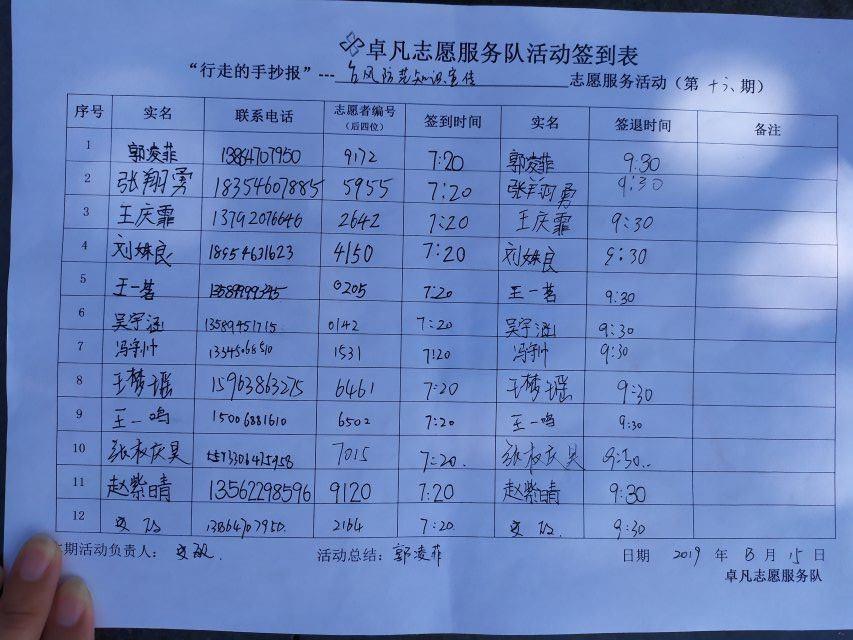 卓凡志愿服务队活动签到表
“行走的手抄报”---台风防范知识宣传 志愿服务活动（第十六期）
序号 实名 联系电话 志愿者编号（后四位） 签到时间 实名 签退时间 备注
1 郭凌菲 13864707950 9172 7:20 郭凌菲 9:30
2 张翔勇 18354607885 5955 7:20 张翔勇 9:30
3 王庆霏 13792076646 2642 7:20 王庆霏 9:30
4 刘姝良 18954631623 4150 7:20 刘姝良 9:30
5 王一茗 0205 7:20 王一茗 9:30
6 吴宇涵 13589451715 0142 7:20 吴宇涵 9:30
7 冯 13345068510 1531 7:20 冯 9:30
8 王梦瑶 15963863275 6461 7:20 王梦瑶 9:30
9 王一鸣 15006881610 6502 7:20 王一鸣 9:30
10 张 7015 7:20. 张 9:30..
11 赵紫晴 13562298596 9120 7:20 赵紫晴 9:30
12 13864707950. 2164 7:20 9:30
本期活动负责人： 活动总结：郭凌菲 日期 2019 年 月 15 日
卓凡志愿服务队